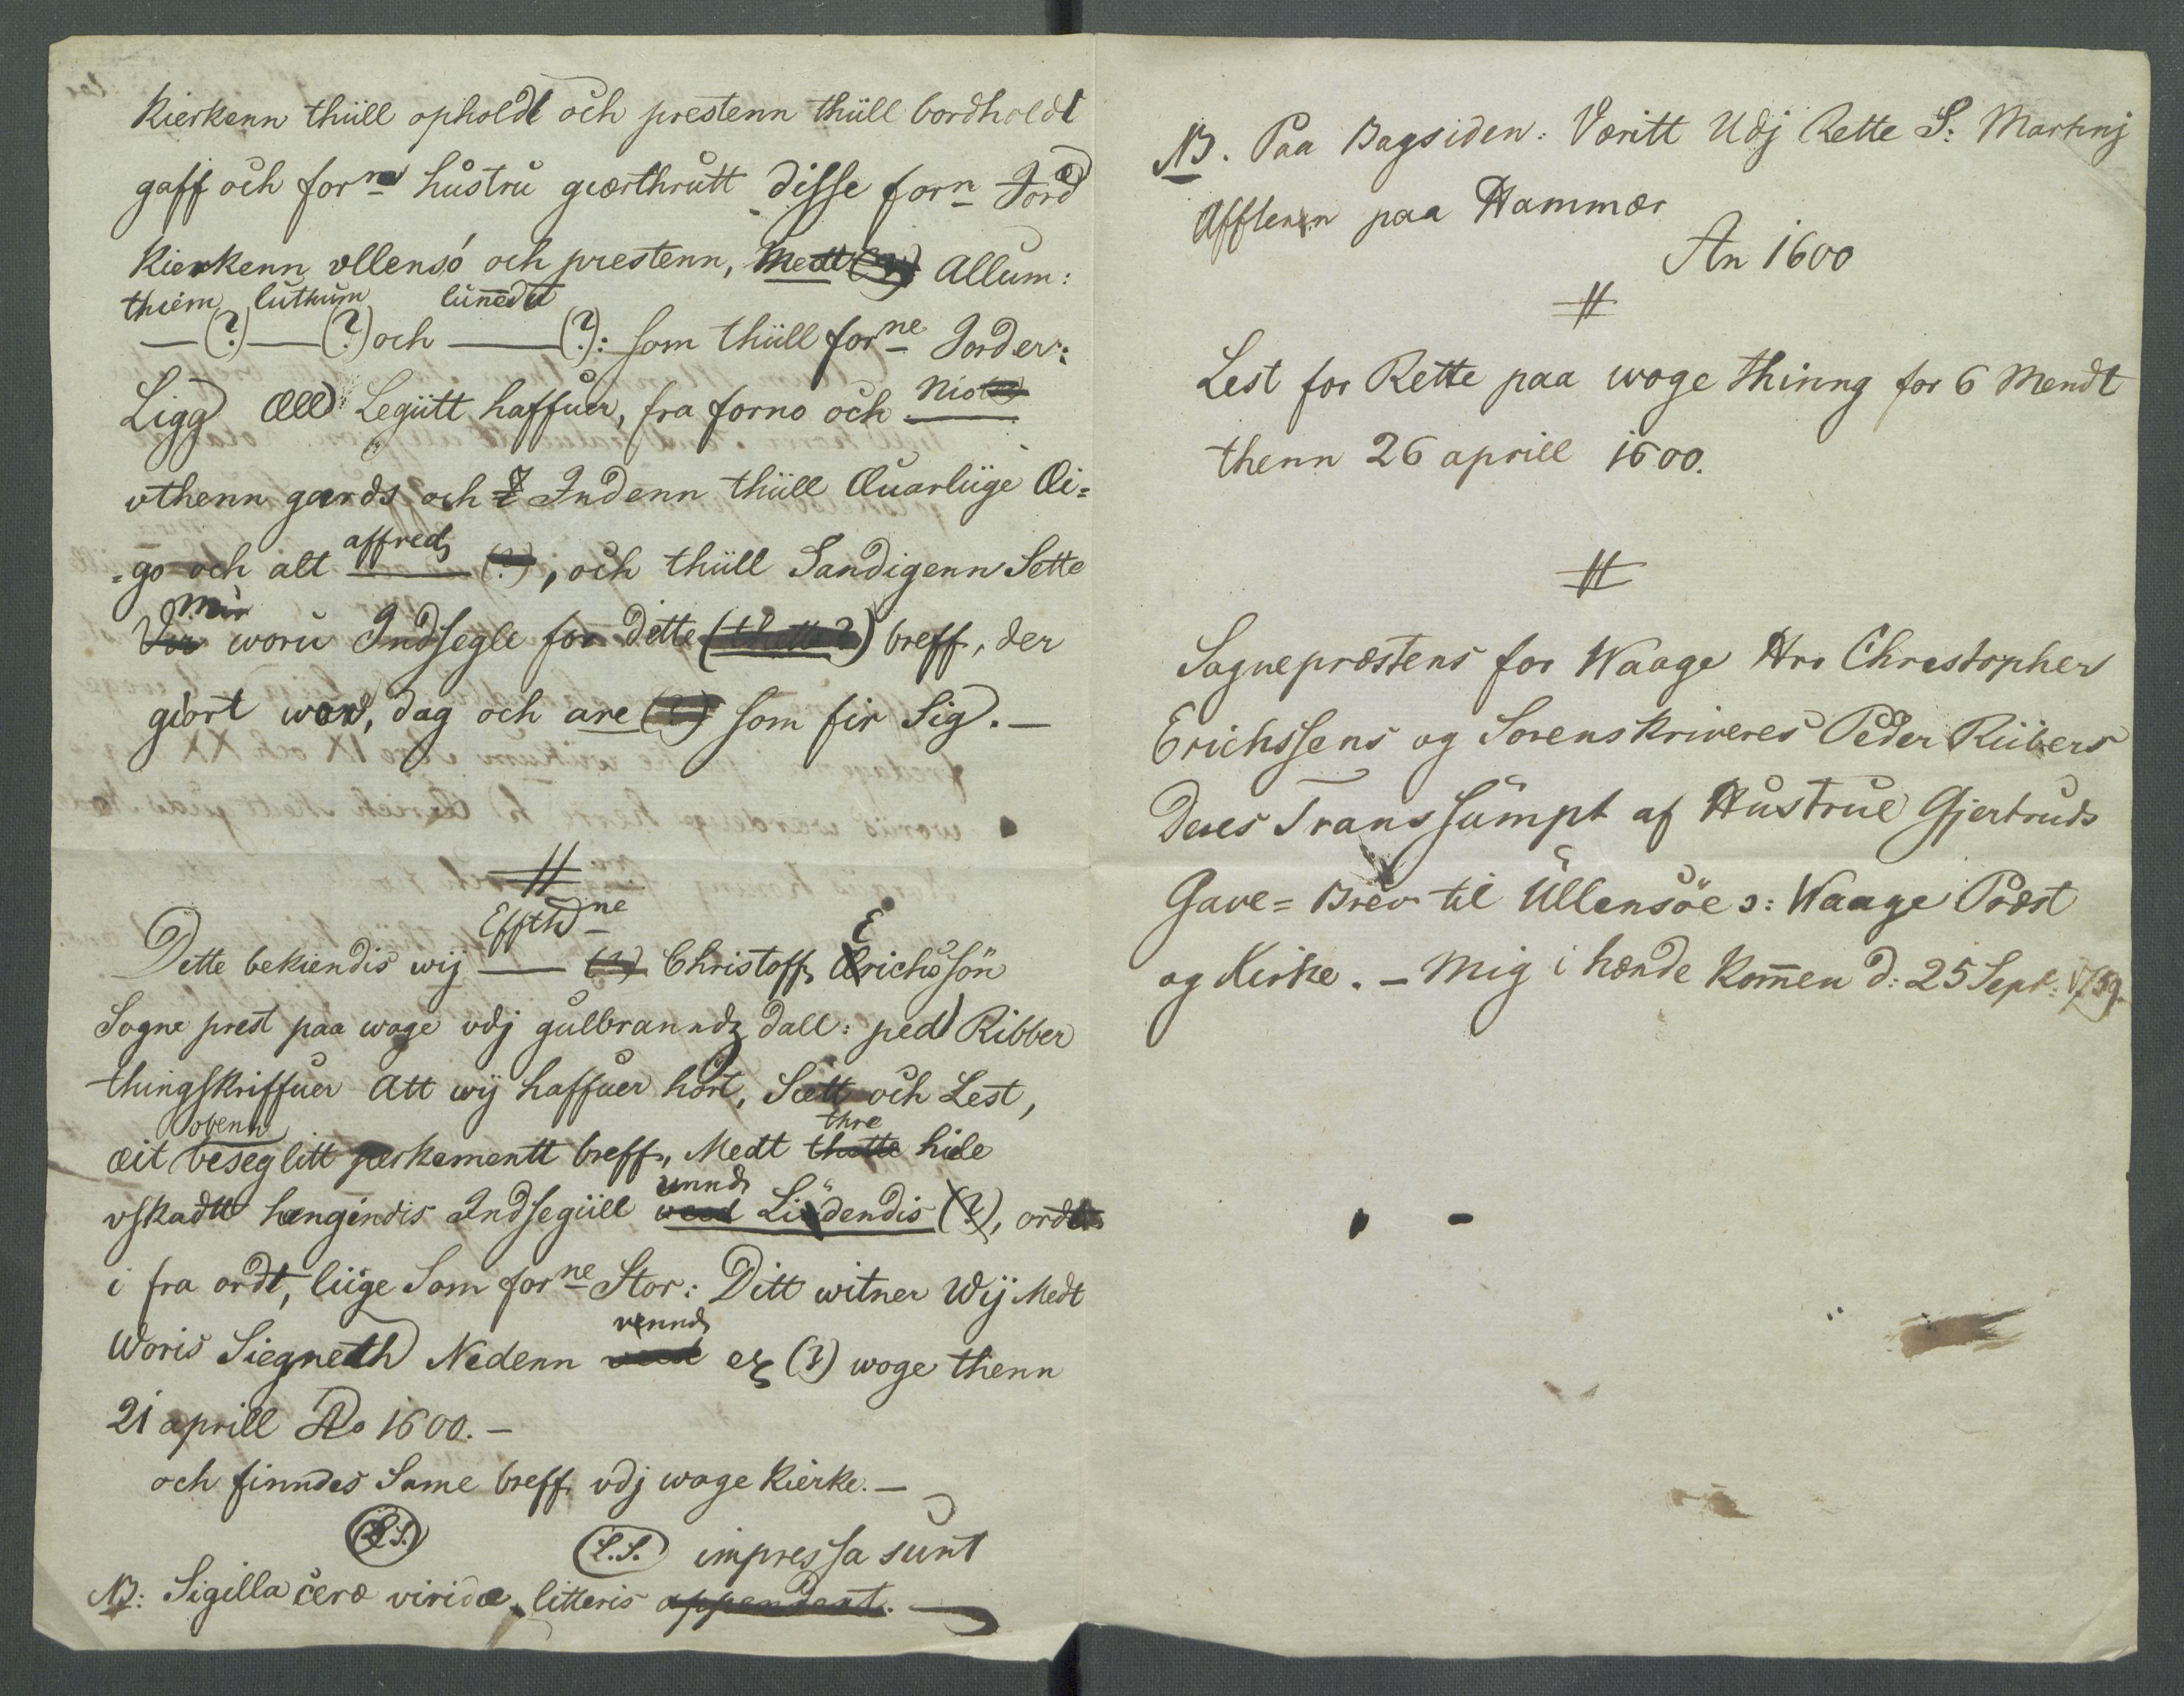 Kierkenn thüll opholdt och prestenn thüll bordholdt
gaff och forne hustru giærthrutt disse forn Jord
Kierkenn ollensó och prestenn, Medt (?) Allum:
thiem luthum lunedu
(?) (?) och (?): som thüll forne Jorder:
Ligg Æll Legütt haffuer, fra forno och Nio
vthenn gærds och Indenn thüll Æuarlüge Æi=
affred
=go och alt (?), och thüll Sandigenn Sette
Wor woru Indsegle for dette (thette?) breff, der
giort word, dag och are (?) som fir Sig. —
Effthne E
Dette bekiendis wij (?) Christoff Ærichssön
Sogne prest paa wage vdj gulbranndz dall: ped Ribber
thingskriffuer Att wij haffuer hört, Sett och Lest,
obenn thre
æit beseglitt perkamentt breff, Medt thette hiele
unnd
vskadt hængindis Indsegüll wed Liüdendis (?), ordt
i fra ordt, liige Som forne Stor: Ditt witner Wij Medt
vennd
Woris Siegneth Nedenn (?) woge thenn
21 aprill Ao 1600. —
och finndes Same breff vdj wage Kierke. —
L.S. L.S. impressa sunt
NB: Sigilla ceræ viridæ litteris appendent.
NB. Paa Bagsiden: Væritt Udj Rette S: Martinj
Afftenn paa Hammær
An 1600
Lest for Rette paa woge thinng for 6 Mendt
thenn 26 aprill 1600.
Sognepræstens for Waage Hrr Christopher
Erichssens og Sorenskriveres Peder Riibers
Deres Transsumpt af Hustrue Gjertruds
Gave= Brev til Üllensöe ɔ: Waage Præst
og Kirke. – Mig i hænde Kom̄en d: 25 Sept: 1759.